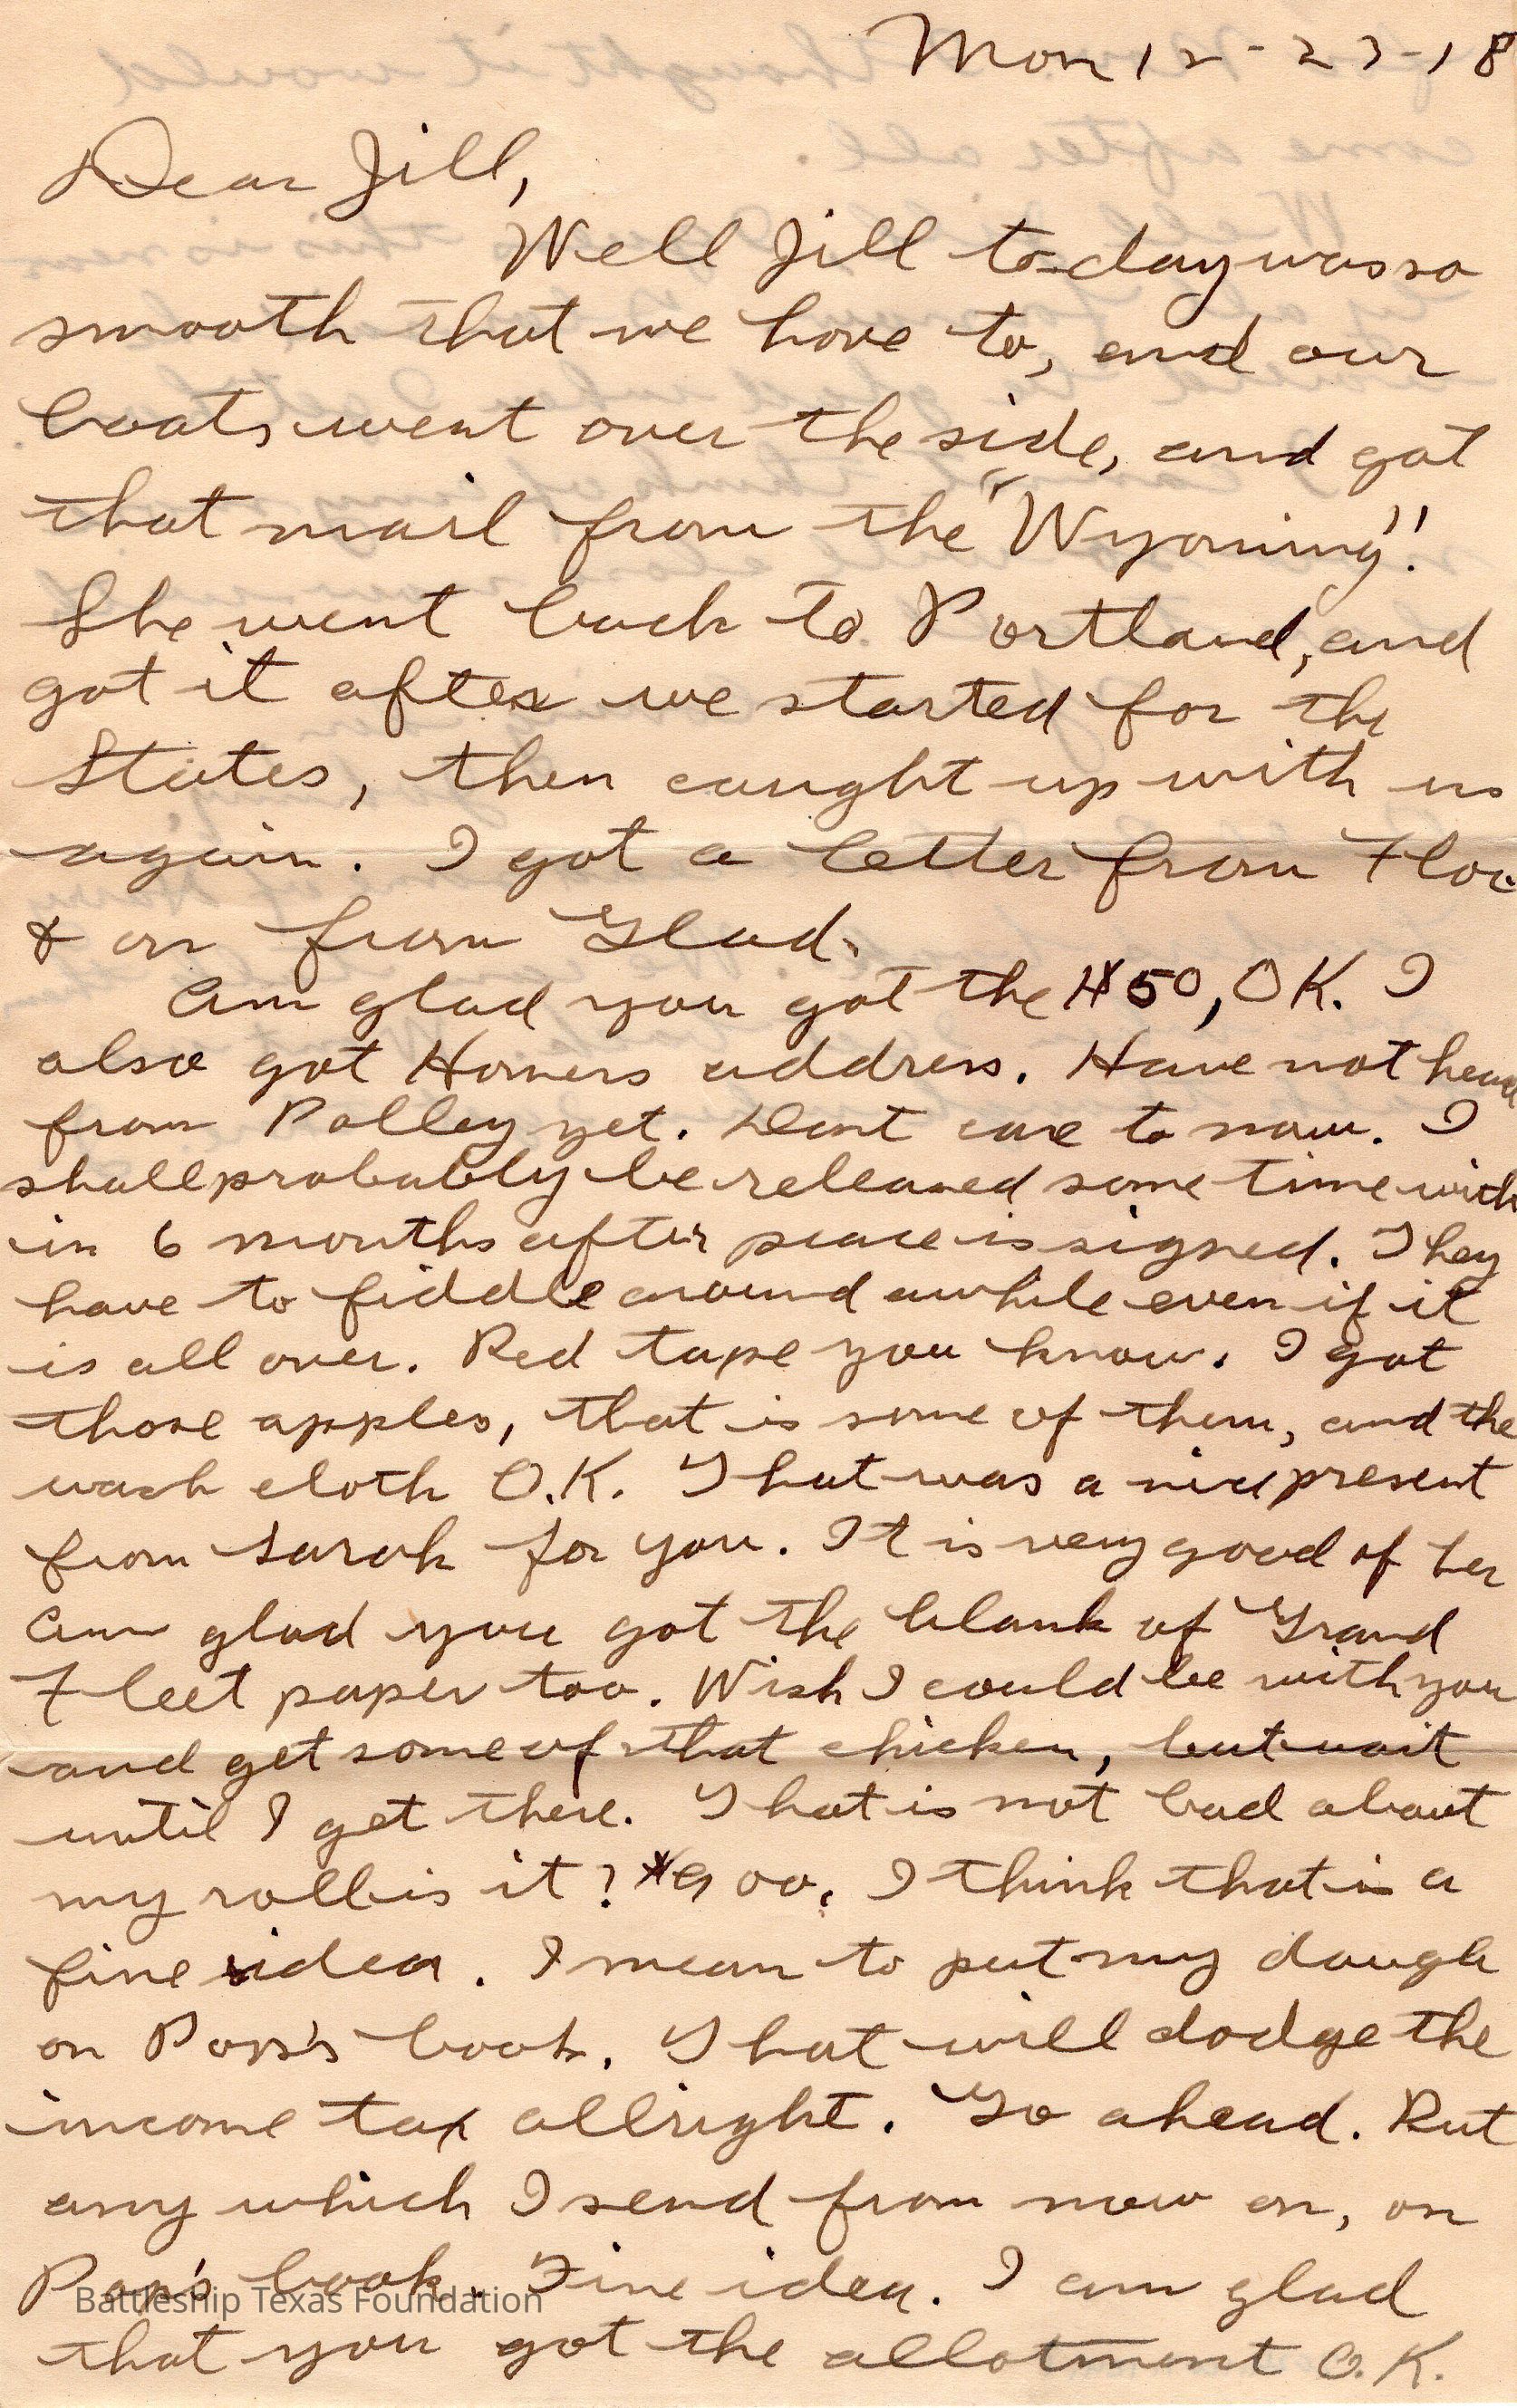 Mon 12-23-18
Dear Jill,
Well Jill to-day was so
smooth that we hove to, and our
boats went over the side, and got
that mail from the "Wyoming".
She went back to Portland, and
got it after we started for the
States, then caught up with us
again. I got a letter from Floe
& on from Glad.
Am glad you got the $50, OK. I
also got Homers address. Have not heard
from Polley yet. Dont care to now. I
shall probably be released some time with
in 6 months after peace is signed. They
have to fiddle around awhile even if it
is all over. Red tape you know. I got
those apples, that is some of them, and the
wash cloth O.K. That was a nice present
from Sarah for you. It is very good of her
Am glad you got the blank of Grand
Fleet paper too. Wish I could be with you
and get some of that chicken, but wait
until I get there. That is not bad about
my roll is it? $900. I think that is a
fine idea. I mean to put my dough
on Pop's book. That will dodge the
income tax allright. Go ahead. Put
any which I send from now on, on
Pop's book. Fine idea. I am glad
Battleship Texas Foundation
that you got the allotment O.K.